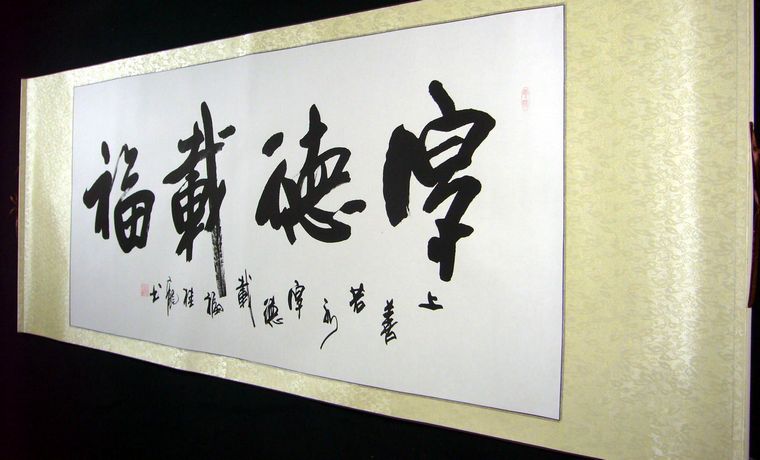 厚德載福
上善若水厚德載福桂书